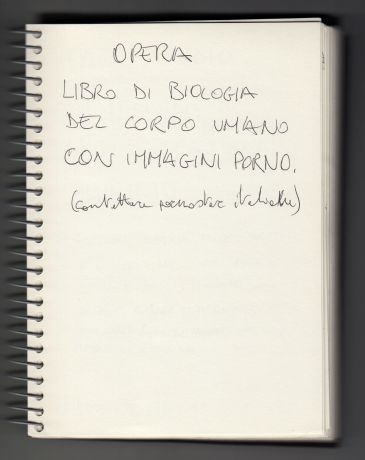 OPERA
LIBRO DI BIOLOGIA
DEL CORPO UMANO
CON IMMAGINI PORNO.
(contattare pornostar italiane)